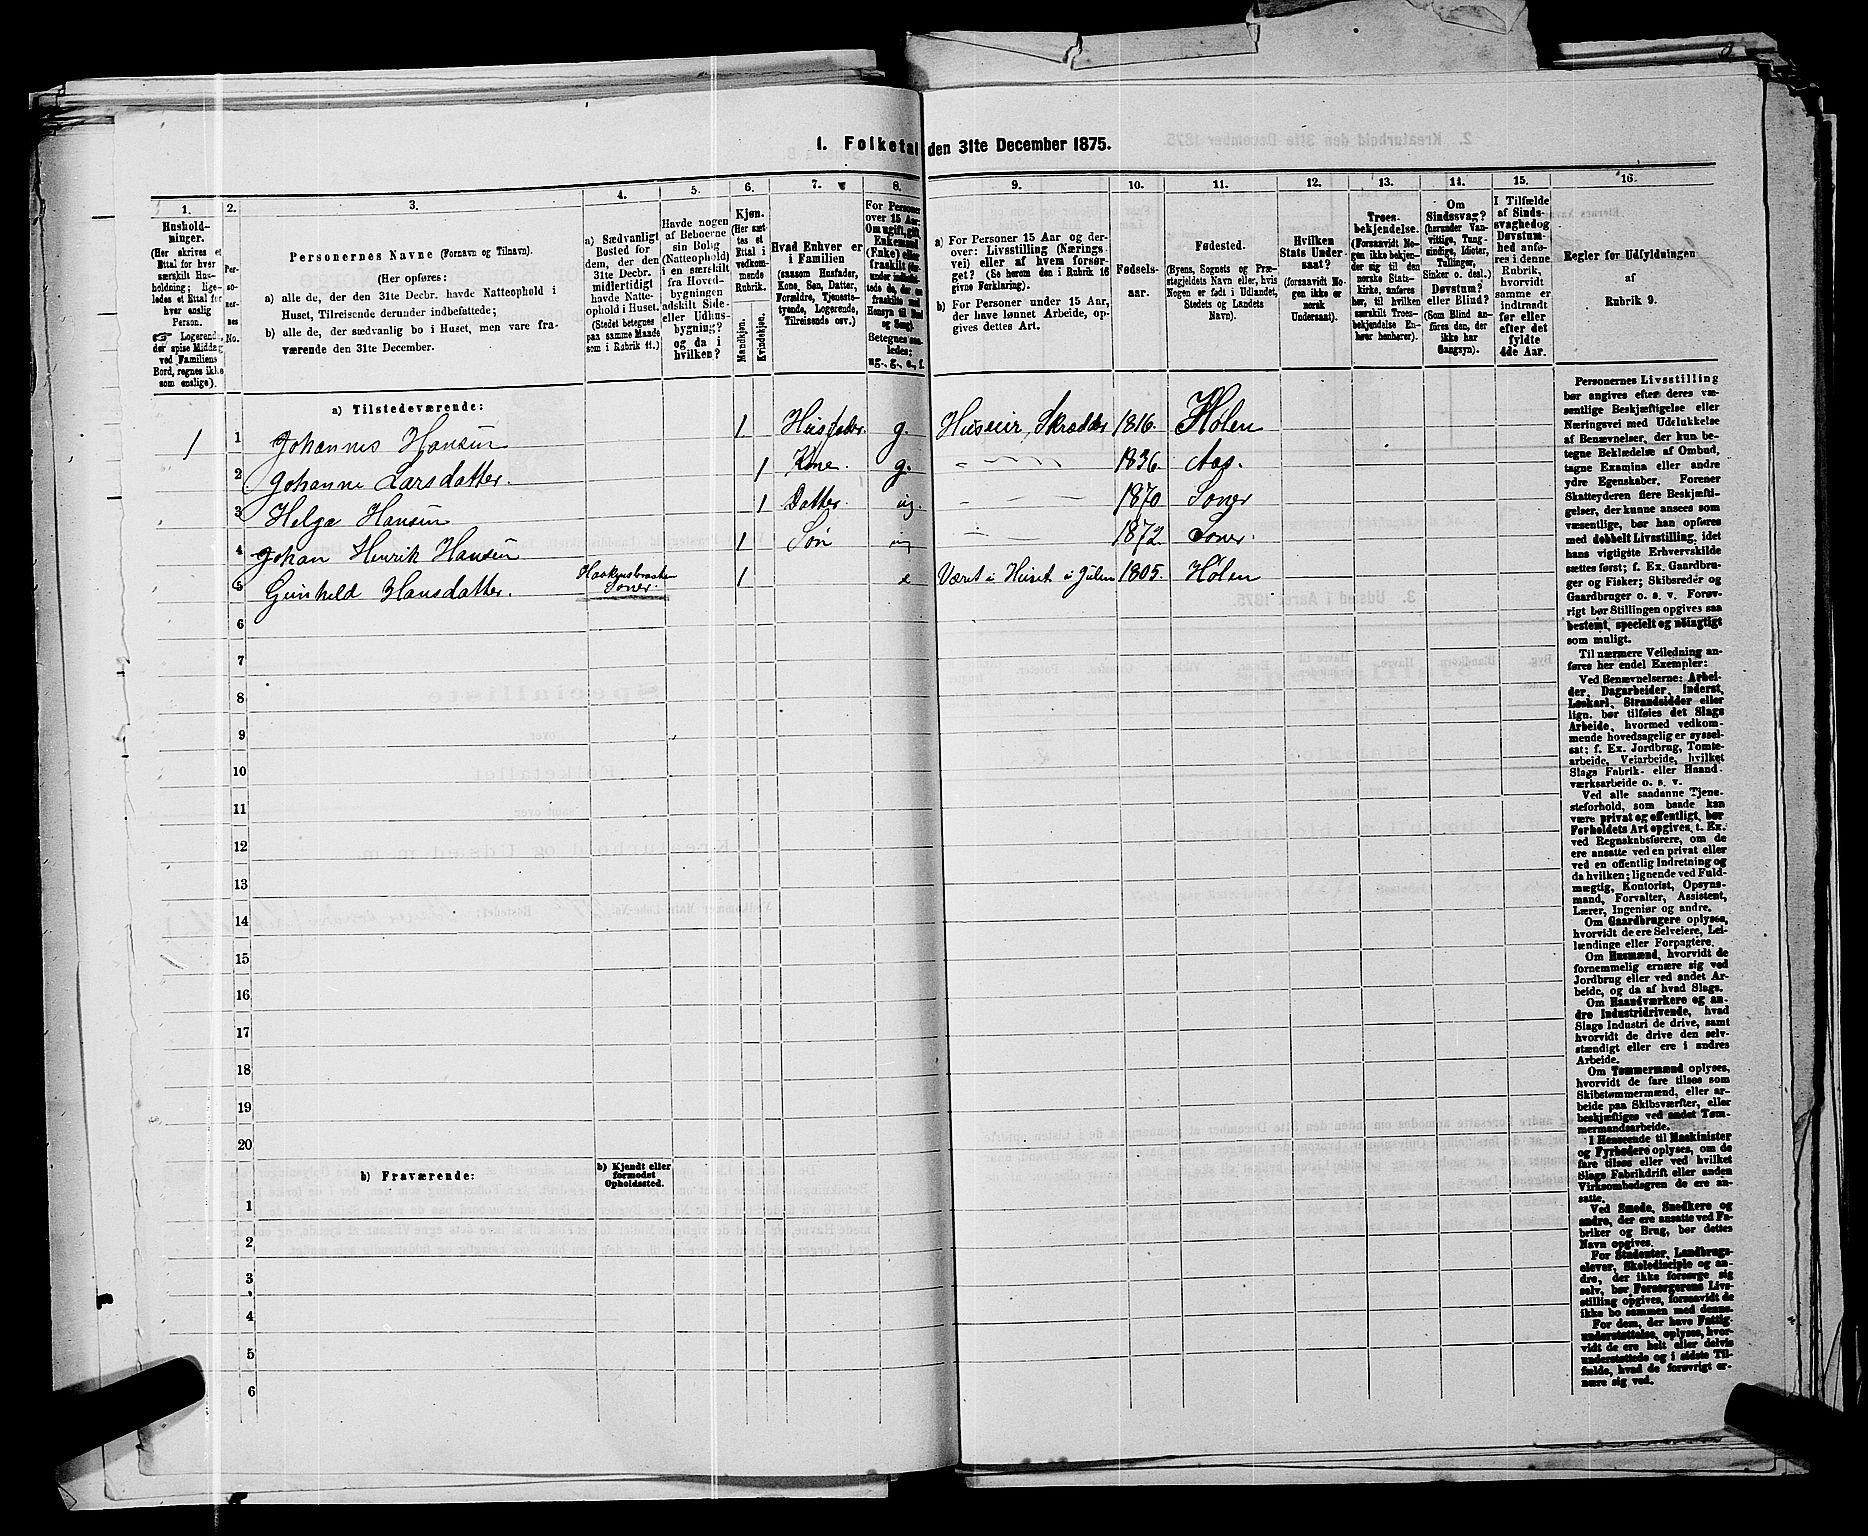 1. Folketal den 31te December 1875.
1. 2. 3. 4. 5. 6. 7. 8. 9. 10. 11. 12. 13. 14. 15. 16.
Hushold-
ninger.
(Her skrives et
Ettal for hver
særskilt Hus-
holdning; lige-
ledes et Ettal for
hver enslig
Person.
☞ Logerende,
der spise Middag
ved Familiens
Bord, regnes ikke
som enslige).
Per-
so-
ner-
nes
No.
Personernes Navne (Fornavn og Tilnavn).
(Her opføres:
a) alle de, der den 31te Decbr. havde Natteophold i
Huset, Tilreisende derunder indbefattede;
b) alle de, der sædvanlig bo i Huset, men vare fra-
værende den 31te December.
a) Sædvanligt
Bosted for
dem, der den
31te Decbr.
midlertidigt
havde Natte-
ophold i Huset.
(Stedet betegnes
paa samme Maade
som i Rubrik 11.)
Havde nogen
af Beboerne
sin Bolig
(Natteophold)
i en særskilt
fra Hoved-
bygningen
adskilt Side-
eller Udhus-
bygning?
og da i
hvilken?
Kjøn.
(Her sæt-
tes et
Ettal i
vedkom-
mende
Rubrik.
Mandkjøn.
Kvindekjøn.
Hvad Enhver er
i Familien
(saasom Husfader,
Kone, Søn, Datter,
Forældre, Tjeneste-
tyende, Logerende,
Tilreisende osv.)
For Personer
over 15 Aar:
Om ugift, gift,
Enkemand
(Enke) eller
fraskilt
Betegnes saa-
ledes:
ug., g., e., f.
a) For Personer 15 Aar og der-
over: Livsstilling (Nærings-
vei) eller af hvem forsør-
get? (Se herom den i Rubrik 16
givne Forklaring).
b) For Personer under 15 Aar,
der have lønnet Arbeide, op-
gives dettes Art.
Fødsels-
aar.
Fødested.
(Byens, Sognets og Præ-
stegjeldets Navn eller, hvis
Nogen er født i Udlandet,
Stedets og Landets
Navn).
Hvilken
Stats Under-
saat?
(forsaavidt No-
gen ikke er
norsk
Undersaat).
Troes-
bekjendelse.
(Forsaavidt No-
gen ikke bekjen-
der sig til den
norske Stats-
kirke, anføres
her, til hvilken
særskilt Troes-
bekjendelse En-
hver henhører).
Om
Sindssvag?
(herunder Van-
vittige, Tung-
sindige, Idioter,
Tullinger,
Sinker o. desl.)
Døvstum?
eller Blind?
(Som Blind an-
føres den, der
ikke har
Gangsyn).
I Tilfælde
af Sinds-
svaghed og
Døvstum-
hed anfø-
res i denne
Rubrik,
hvorvidt
samme er
indtraadt
før eller
efter det
fyldte
4de Aar.
Regler for Udfyldningen
af
Rubrik 9.
a) Tilstedeværende:
1 1 Johannes Hansen 1 Husfader. g. Huseier, Skrædder 1816. Hølen
2 Johanne Larsdatter. 1 Kone. g. 1836. Aas.
3 Helga Hansen 1 Datter. ug. 1870 Soner
4 Johan Henrik Hansen 1 Søn ug 1872. Soner.
5 Gunhild Hansdatter. Soner. 1 e Været i Huset i Julen 1805. Hølen
6
7
8
9
10
11
12
13
14
15
16
17
18
19
20
b) Fraværende:
b) Kjendt eller
formodet
Opholdssted.
1
2
3
4
5
6
Personernes Livsstilling
bør angives efter deres væ-
sentlige Beskjæftigelse eller
Næringsvei med Udelukkelse
af Benævnelser, der kun be-
tegne Beklædelse af Ombud,
tagne Examina eller andre
ydre Egenskaber. Forener
Skatteyderen flere Beskjæfti-
gelser, der kunne ansees som
væsentlige, bør han opføres
med dobbelt Livsstilling, idet
hans vigtigste Erhvervskilde
sættes først; f. Ex. Gaardbru-
ger og Fisker; Skibsreder og
Gaardbruger o. s. v. Forøv-
rigt bør Stillingen opgives saa
bestemt, specielt og nøiagtigt
som muligt.
Til nærmere Veiledning an-
føres her endel Exempler:
Ved Benævnelserne: Arbei-
der, Dagarbeider, Inderst,
Løskarl, Strandsidder eller
lign. bør tilføies det Slags
Arbeide, hvormed vedkom-
mende hovedsagelig er syssel-
sat; f. Ex. Jordbrug, Tomte-
arbeide, Veiarbeide, hvilket
Slags Fabrik- eller Haand-
værksarbeide o. s. v.
Ved alle saadanne Tjene-
steforhold, som baade kan
være privat og offentligt, bør
Forholdets Art opgives, t. Ex.
ved Regnskabsførere, om de
ere ansatte ved en privat eller
ved en offentlig Indretning og
da hvilken; lignende ved Fuld-
mægtig, Kontorist, Opsyns-
mand, Forvalter, Assistent,
Lærer, Ingeniør og andre.
Om Gaardbrugere oplyses,
hvorvidt de ere Selveiere, Lei-
lændinge eller Forpagtere.
Om Husmænd, hvorvidt de
fornemmelig ernære sig ved
Jordbrug eller ved andet Ar-
beide, og da af hvad Slags.
Om Haandværkere og an-
dre Industridrivende, hvad
Slags Industri de drive, samt
hvorvidt de drive den selv-
stændigt eller ere i andres
Arbeide.
Om Tømmermænd oplyses,
hvorvidt de fare tilsøs som
Skibstømmermænd, eller ar-
beide paa Skibsværfter, eller
beskjæftiges ved andet Tøm-
mermandsarbeide.
I Henseende til Maskinister
og Fyrbødere oplyses, om de
fare tilsøs eller ved hvilket
Slags Fabrikdrift eller anden
Virksomhedsgren de ere an-
satte.
Ved Smede, Snedkere og
andre, der ere ansatte ved Fa-
briker og Brug, bør dettes
Navn opgives.
For Studenter, Landbrugs-
elever, Skoledisciple og an-
dre, der ikke forsørge sig
selv, bør Forsørgerens Livs-
stilling opgives, forsaavidt de
ikke bo sammen med denne.
For dem, der have Fattig-
understøttelse, oplyses, hvor-
vidt de ere helt eller delvis
understøttede og i sidste Til-
fælde, hvad de forøvrigt er-
nære sig ved.